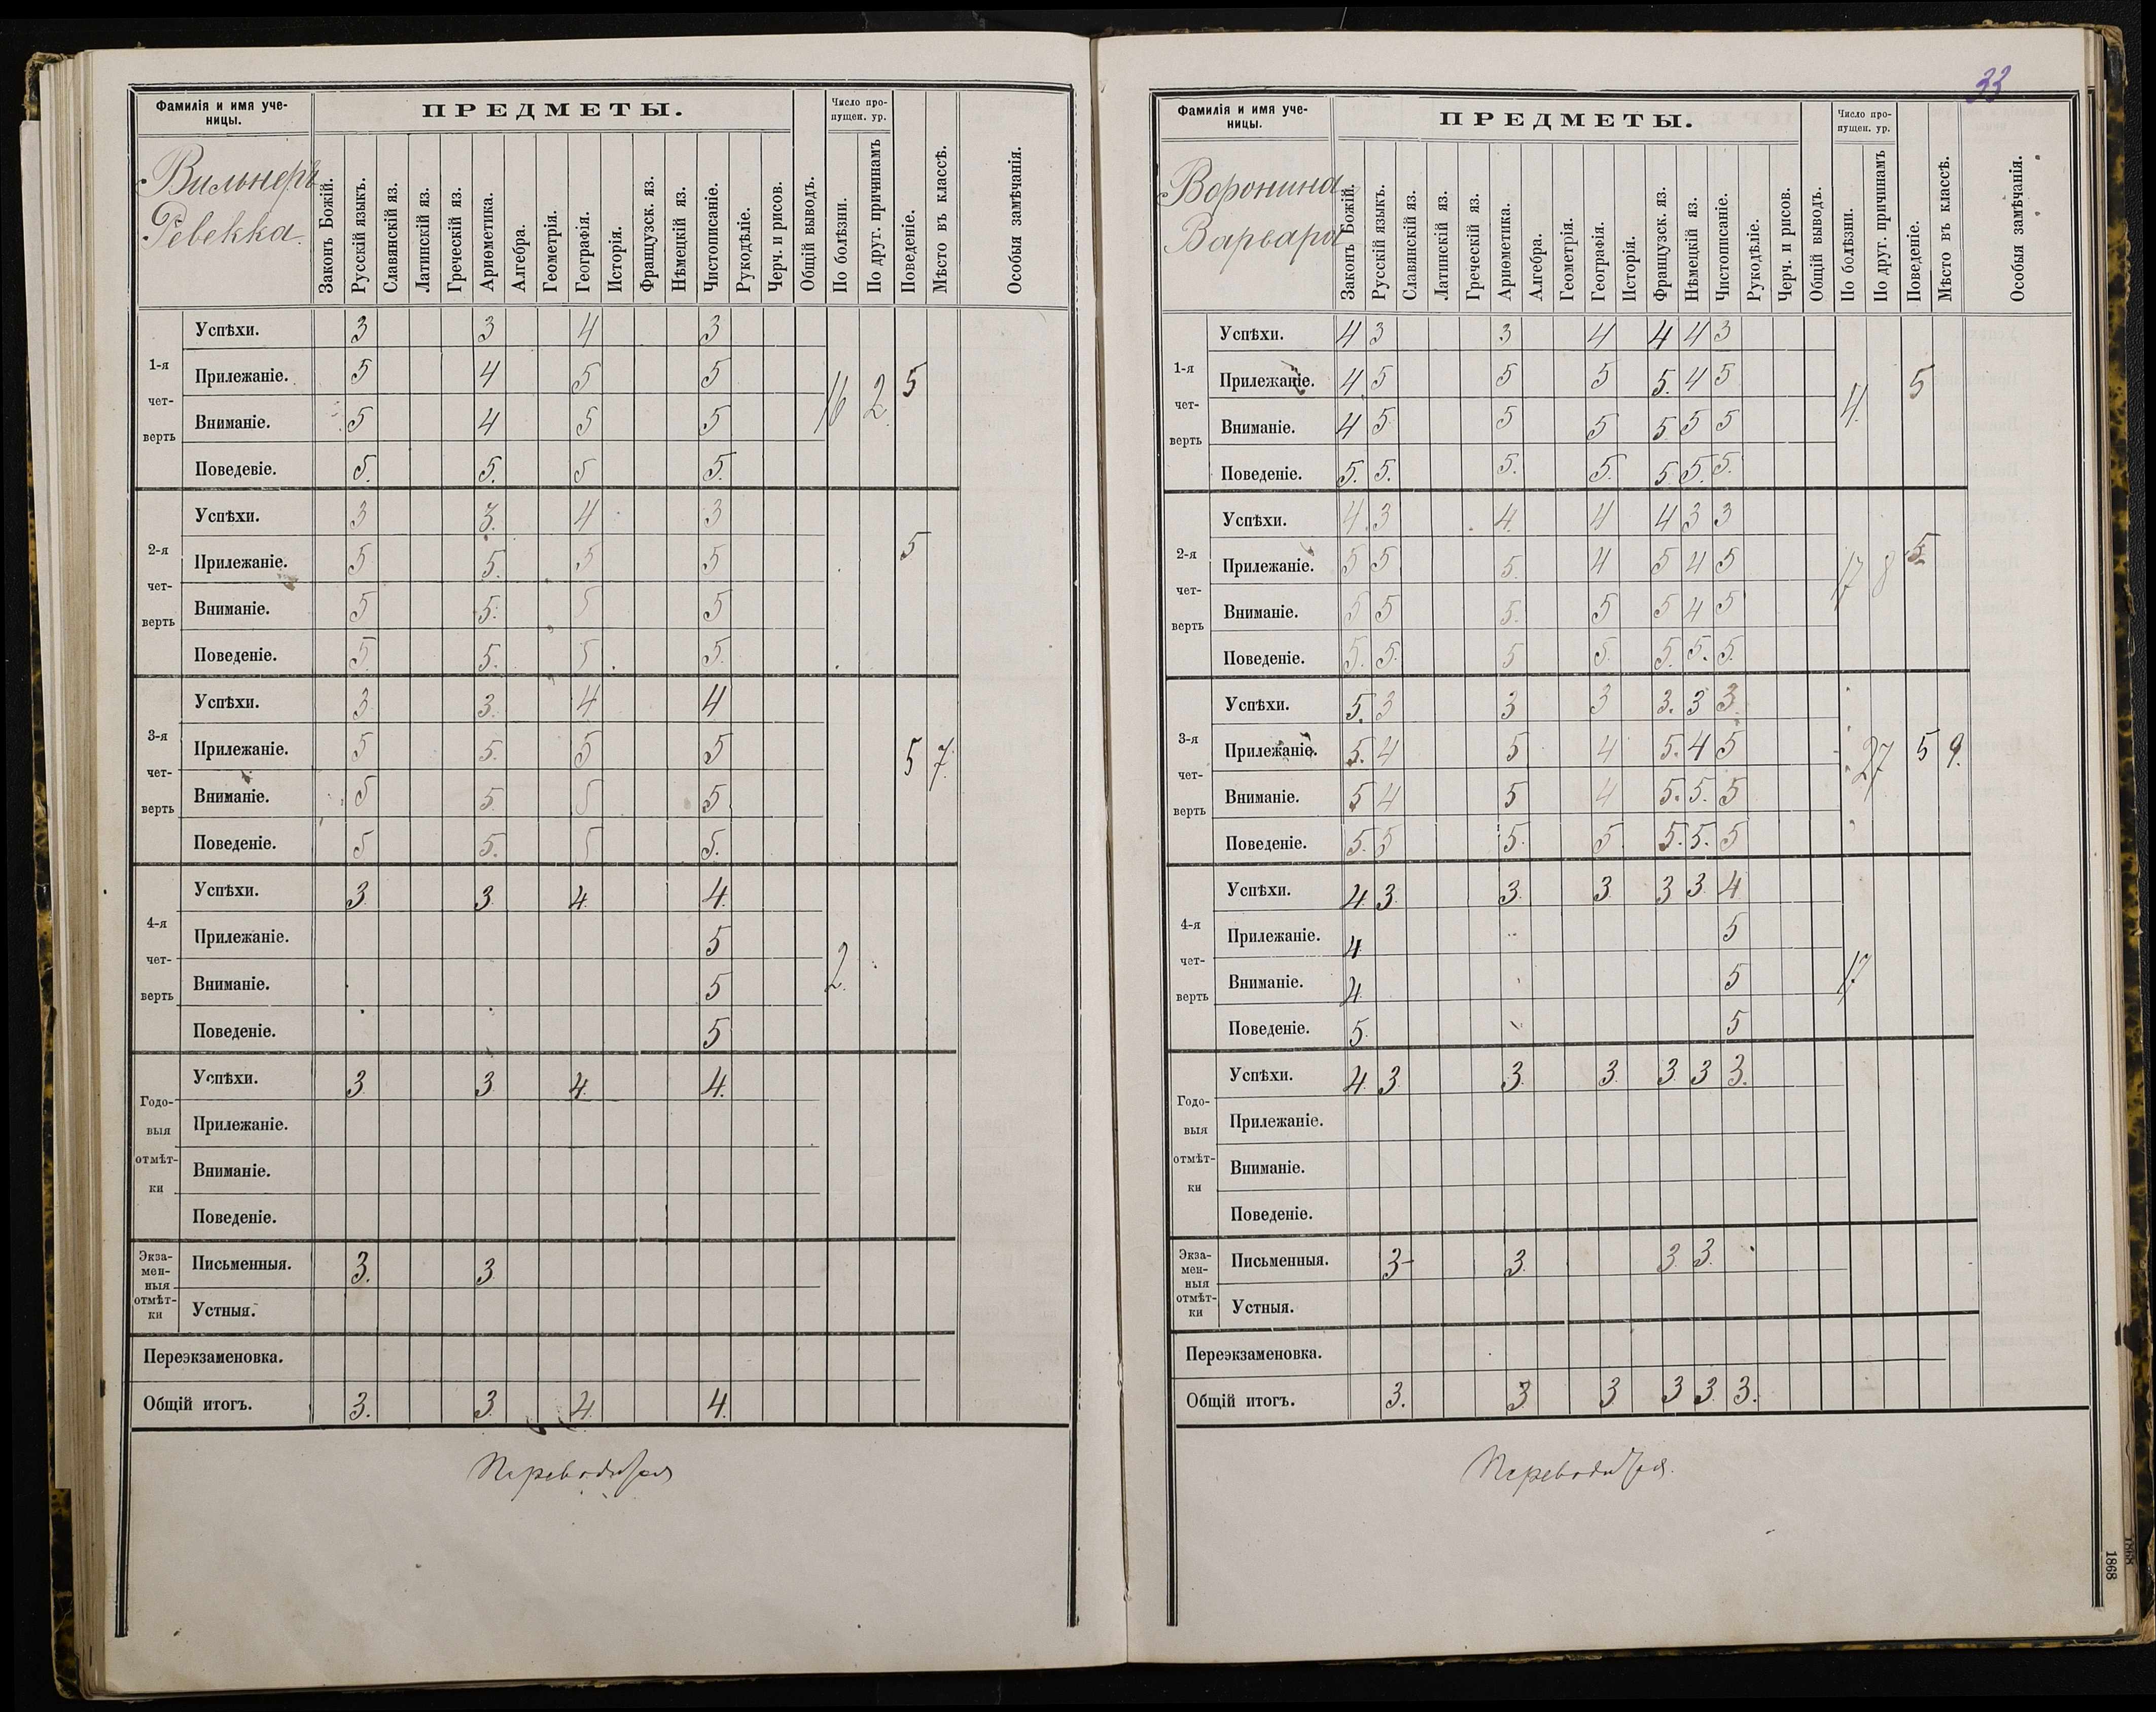 Фамилія и имя уче-
ницы.
ПРЕДМЕТЫ.
Число про-
пущен. ур.
Вильнеръ
Ревекка.
Законъ Божій.
Русскій языкъ.
Славянскій яз.
Латинскій яз.
Греческій яз.
Ариѳметика.
Алгебра.
Геометрія.
Географія.
Исторія.
Французск. яз.
Нѣмецкій яз.
Чистописаніе.
Рукодѣліе.
Черч. и рисов.
Общій выводъ.
По болѣзни.
По друг. причинамъ
Поведеніе.
Мѣсто въ классѣ.
Особыя замѣчанія.
1-я чет- верть
Успѣхи. 3 3 4 3
Прилежаніе. 5 4 5 5 16 2 5
Вниманіе. 5 4 5 5
Поведевіе. 5. 5. 5 5.
2-я чет- верть
Успѣхи. 3 3. 4 3
Прилежаніе. 5 5. 5 5 5
Вниманіе. 5 5. 5 5
Поведеніе. 5. 5. 5. 5.
3-я чет- верть
Успѣхи. 3 3. 4 4
Прилежаніе. 5 5. 5 5 5 7.
Вниманіе. 5 5. 5 5.
Поведеніе. 5 5. 5 5.
4-я чет- верть
Успѣхи. 3. 3. 4. 4.
Прилежаніе. 5
Вниманіе. 5 2.
Поведеніе. 5
Годо- выя отмѣт- ки
Успѣхи. 3. 3 4. 4.
Прилежаніе.
Вниманіе.
Поведеніе.
Экза- мен- ныя отмѣт- ки
Письменныя. 3. 3
Устныя.
Переэкзаменовка.
Общій итогъ. 3. 3. 4. 4.
Переводится
33
Фамилія и имя уче-
ницы.
ПРЕДМЕТЫ.
Число про-
пущен. ур.
Воронина
Варвара
Законъ Божій.
Русскій языкъ.
Славянскій яз.
Латинскій яз.
Греческій яз.
Ариѳметика.
Алгебра.
Геометрія.
Географія.
Исторія.
Французск. яз.
Нѣмецкій яз.
Чистописаніе.
Рукодѣліе.
Черч. и рисов.
Общій выводъ.
По болѣзни.
По друг. причинамъ
Поведеніе.
Мѣсто въ классѣ.
Особыя замѣчанія.
1-я чет- верть
Успѣхи. 4 3 3 4 4 4 3
Прилежаніе. 4 5 5 5 5. 4 5 4. 5
Вниманіе. 4 5 5 5 5 5 5
Поведеніе. 5. 5. 5. 5. 5. 5. 5.
2-я чет- верть
Успѣхи. 4. 3 4. 4 4 3 3
Прилежаніе. 5 5 5. 4 5 4 5 17 8 5.
Вниманіе. 5 5 5. 5 5 4 5
Поведеніе. 5. 5. 5 5. 5. 5. 5.
3-я чет- верть
Успѣхи. 5. 3 3 3 3. 3 3.
Прилежаніе. 5. 4 5 4 5. 4 5 27 5 9.
Вниманіе. 5 4 5 4 5. 5. 5
Поведеніе. 5. 5 5. 5. 5. 5. 5
4-я чет- верть
Успѣхи. 4. 3. 3. 3. 3 3. 4
Прилежаніе. 4. 5
Вниманіе. 4. 5 17.
Поведеніе. 5. 5
Годо- выя отмѣт- ки
Успѣхи. 4. 3 3. 3. 3. 3 3.
Прилежаніе.
Вниманіе.
Поведеніе.
Экза- мен- ныя отмѣт- ки
Письменныя. 3- 3. 3. 3.
Устныя.
Переэкзаменовка.
Общій итогъ. 3. 3 3 3 3. 3.
Переводится.
1868
1868